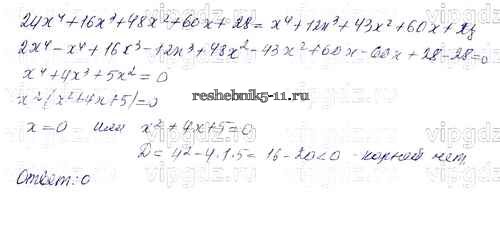 2x⁴+16x³+48x²+60x+28= x⁴+12x³+43x²+60x+28
2x⁴-x⁴+16x³-12x³+48x²-43x²+60x-60x+28-28=0
x⁴+4x³+5x²=0
x²(x²+4x+5)=0
reshebnik5-11.ru
x=0 или x²+4x+5=0
D=4²-4·1·5=16-20<0 - корней нет
Ответ: 0